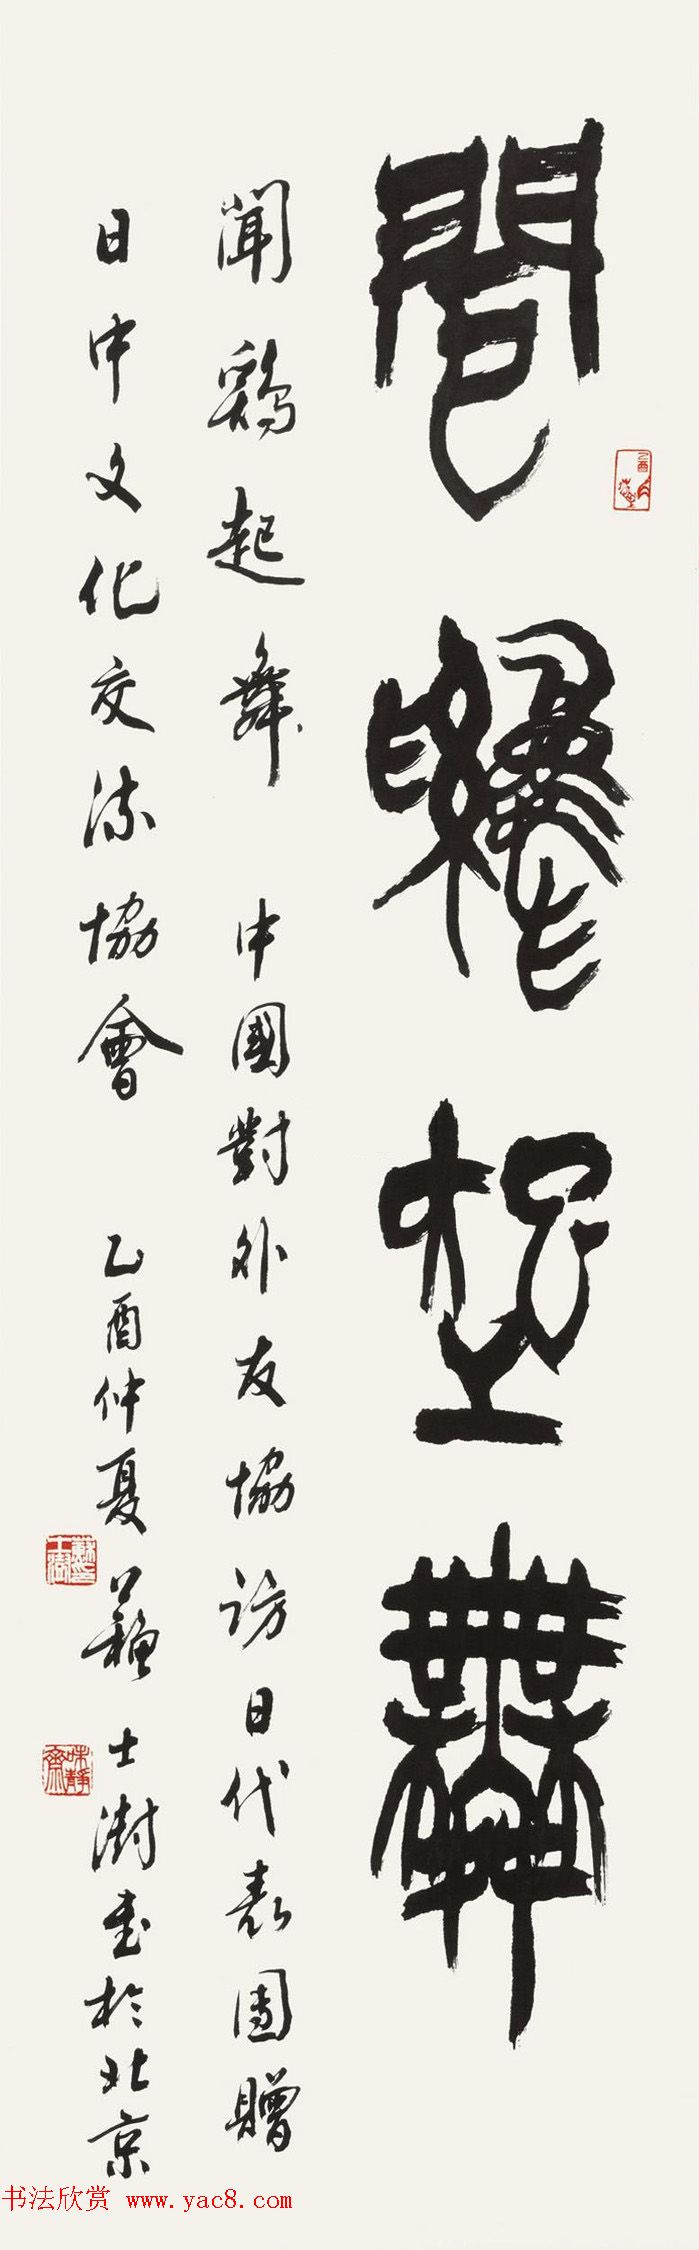 聞雞起舞
聞鷄起舞 中國對外友協访日代表團贈
日中文化交流協會 乙酉仲夏 蘇士澍書於北京
蘇士澍印
味靜齋
书法欣赏 www.yac8.com